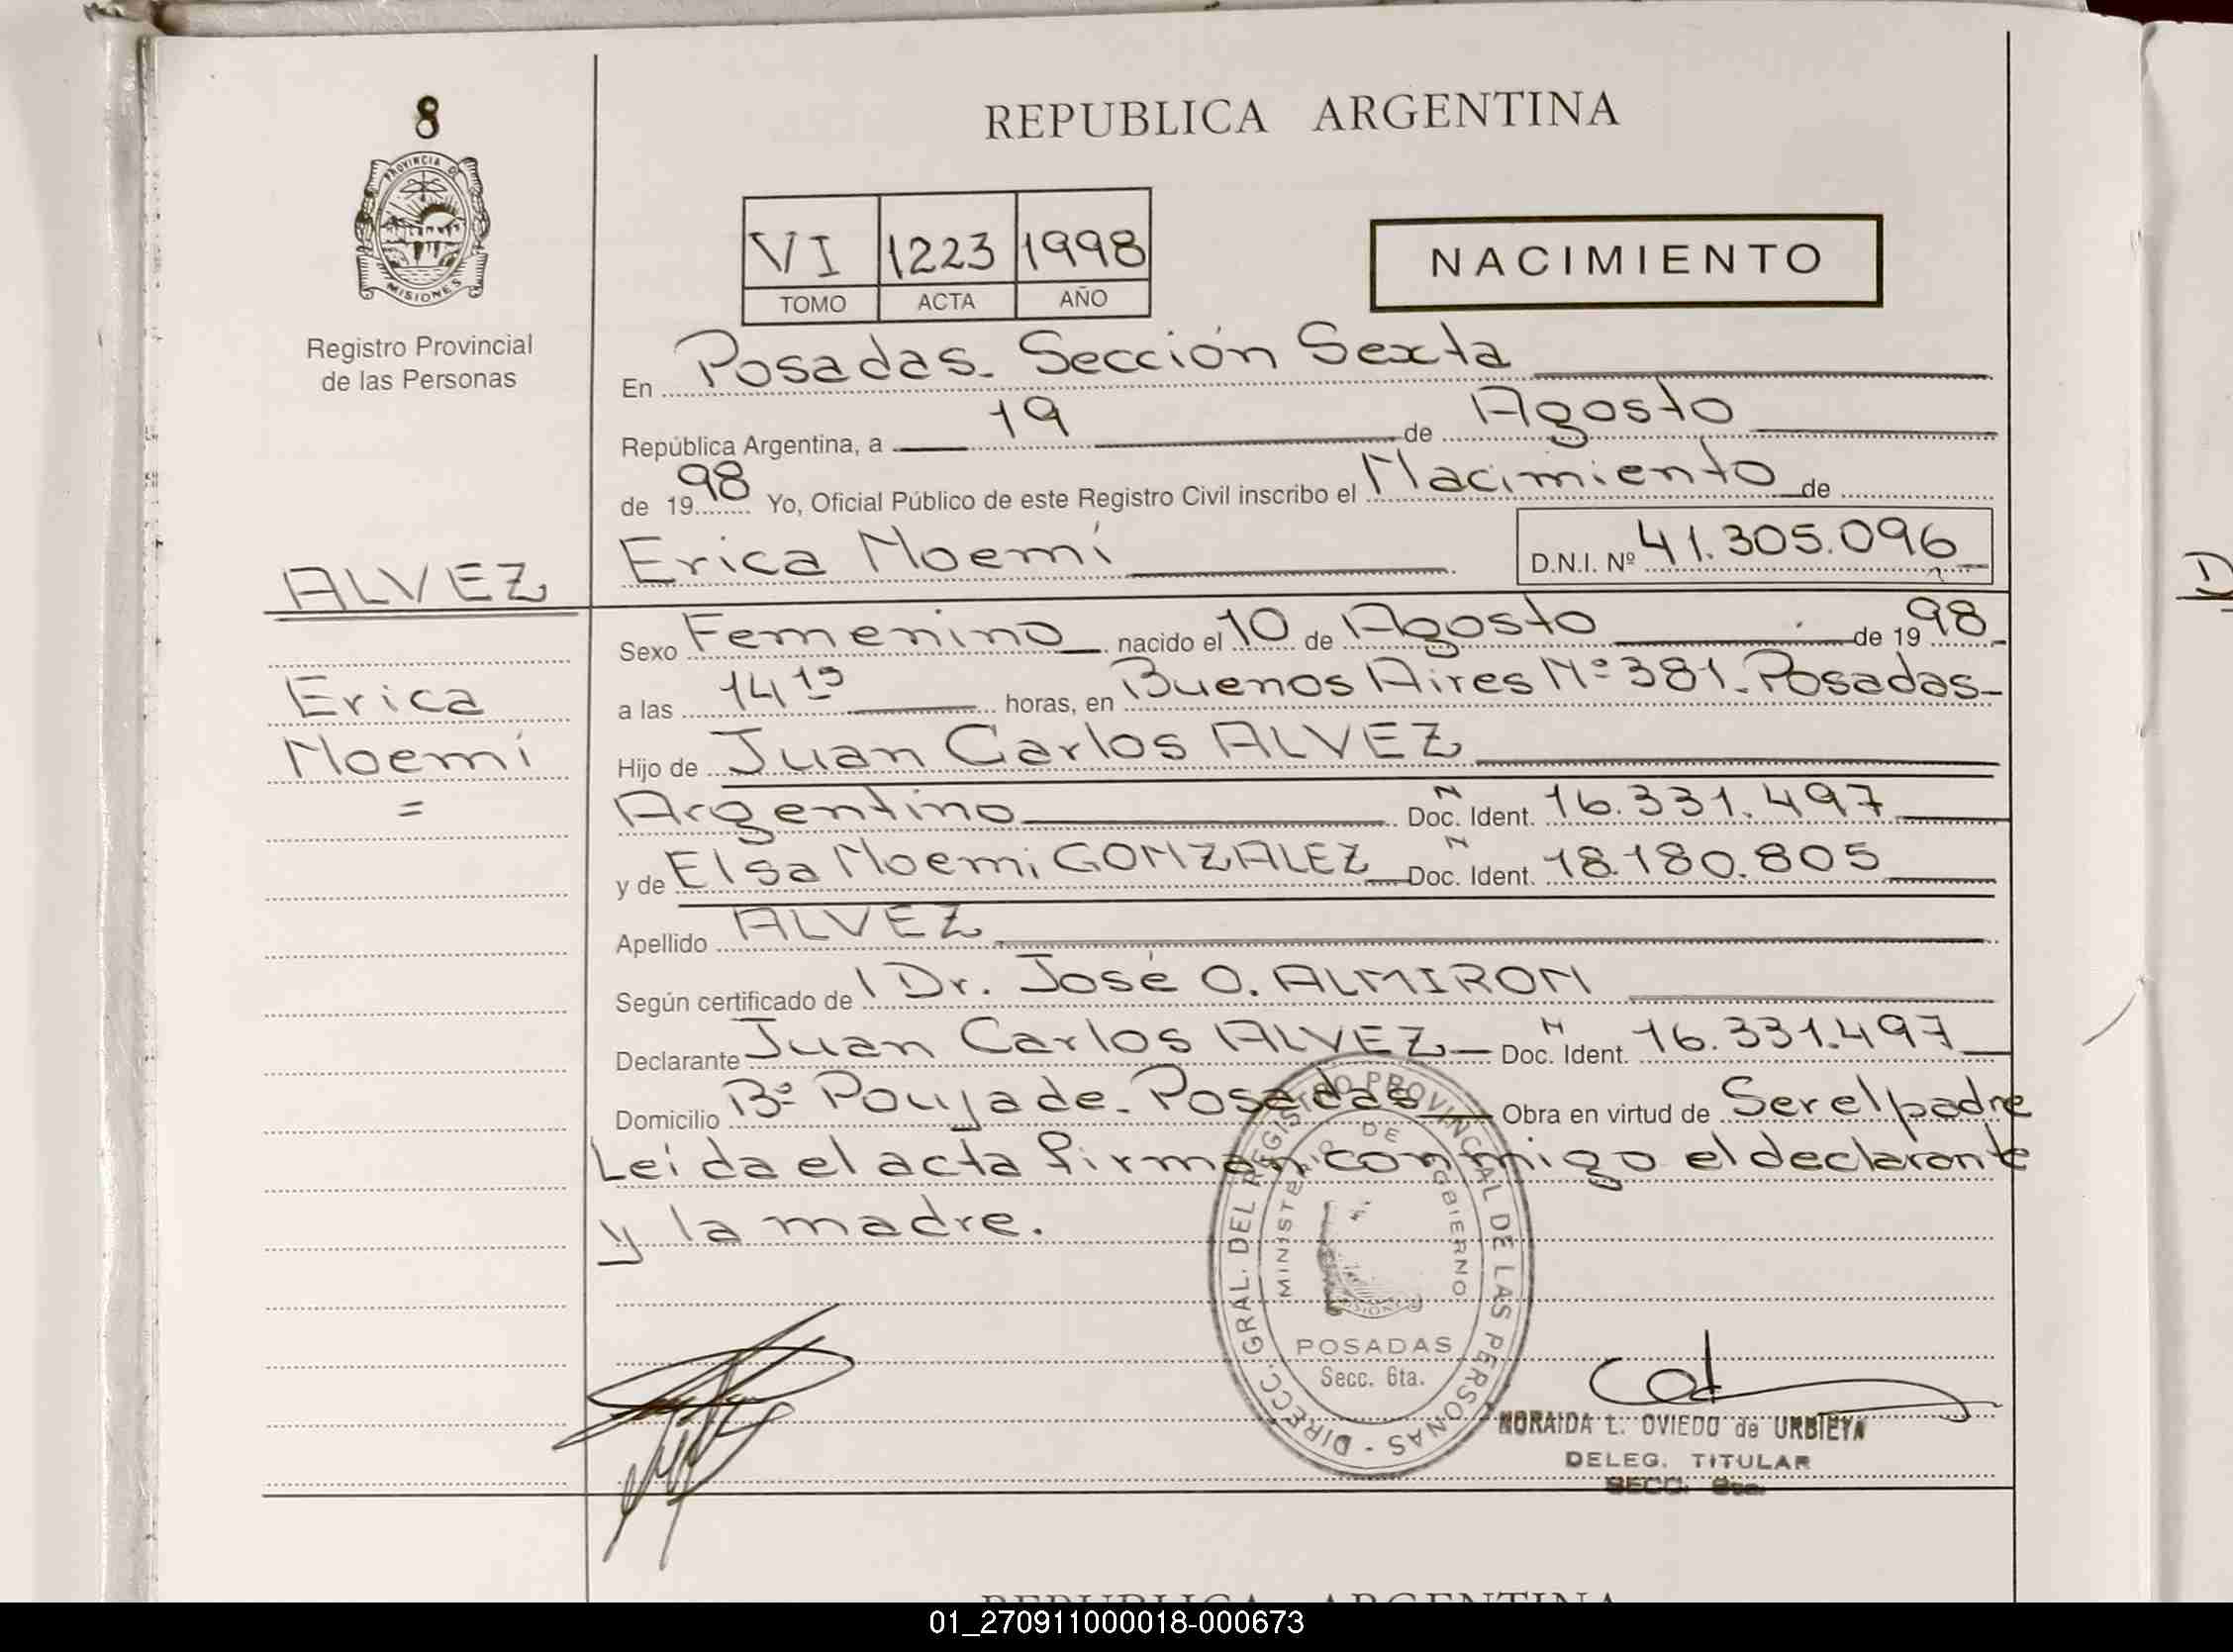 8
PROVINCIA DE
MISIONES
Registro Provincial
de las Personas
REPUBLICA ARGENTINA
VI 1223 1998
TOMO ACTA AÑO
NACIMIENTO
En Posadas. Sección Sexta
República Argentina, a 19 de Agosto
de 1998 Yo, Oficial Público de este Registro Civil inscribo el Nacimiento de
Erica Noemí D.N.I. Nº 41.305.096
ALVEZ
Erica
Noemí
=
Sexo Femenino nacido el 10 de Agosto de 1998
a las 14 15 horas, en Buenos Aires Nº 381. Posadas
Hijo de Juan Carlos ALVEZ
Argentino Doc. N Ident. 16.331.497
y de Elsa Noemi GONZALEZ Doc. N Ident. 18.180.805
Apellido ALVEZ
Según certificado de Dr. José O. ALMIRON
Declarante Juan Carlos ALVEZ Doc. N Ident. 16.331.497
Domicilio Bº Poujade. Posadas Obra en virtud de Ser el padre
Leída el acta firman conmigo el declarante
y la madre.
DIRECC. GRAL. DEL REGISTRO PROVINCIAL DE LAS PERSONAS -
MINISTERIO DE GOBIERNO
MISIONES
POSADAS
Secc. 6ta.
NORAIDA L. OVIEDO de URBIETA
DELEG. TITULAR
SECC. 6ta.
REPUBLICA ARGENTINA
01_270911000018-000673